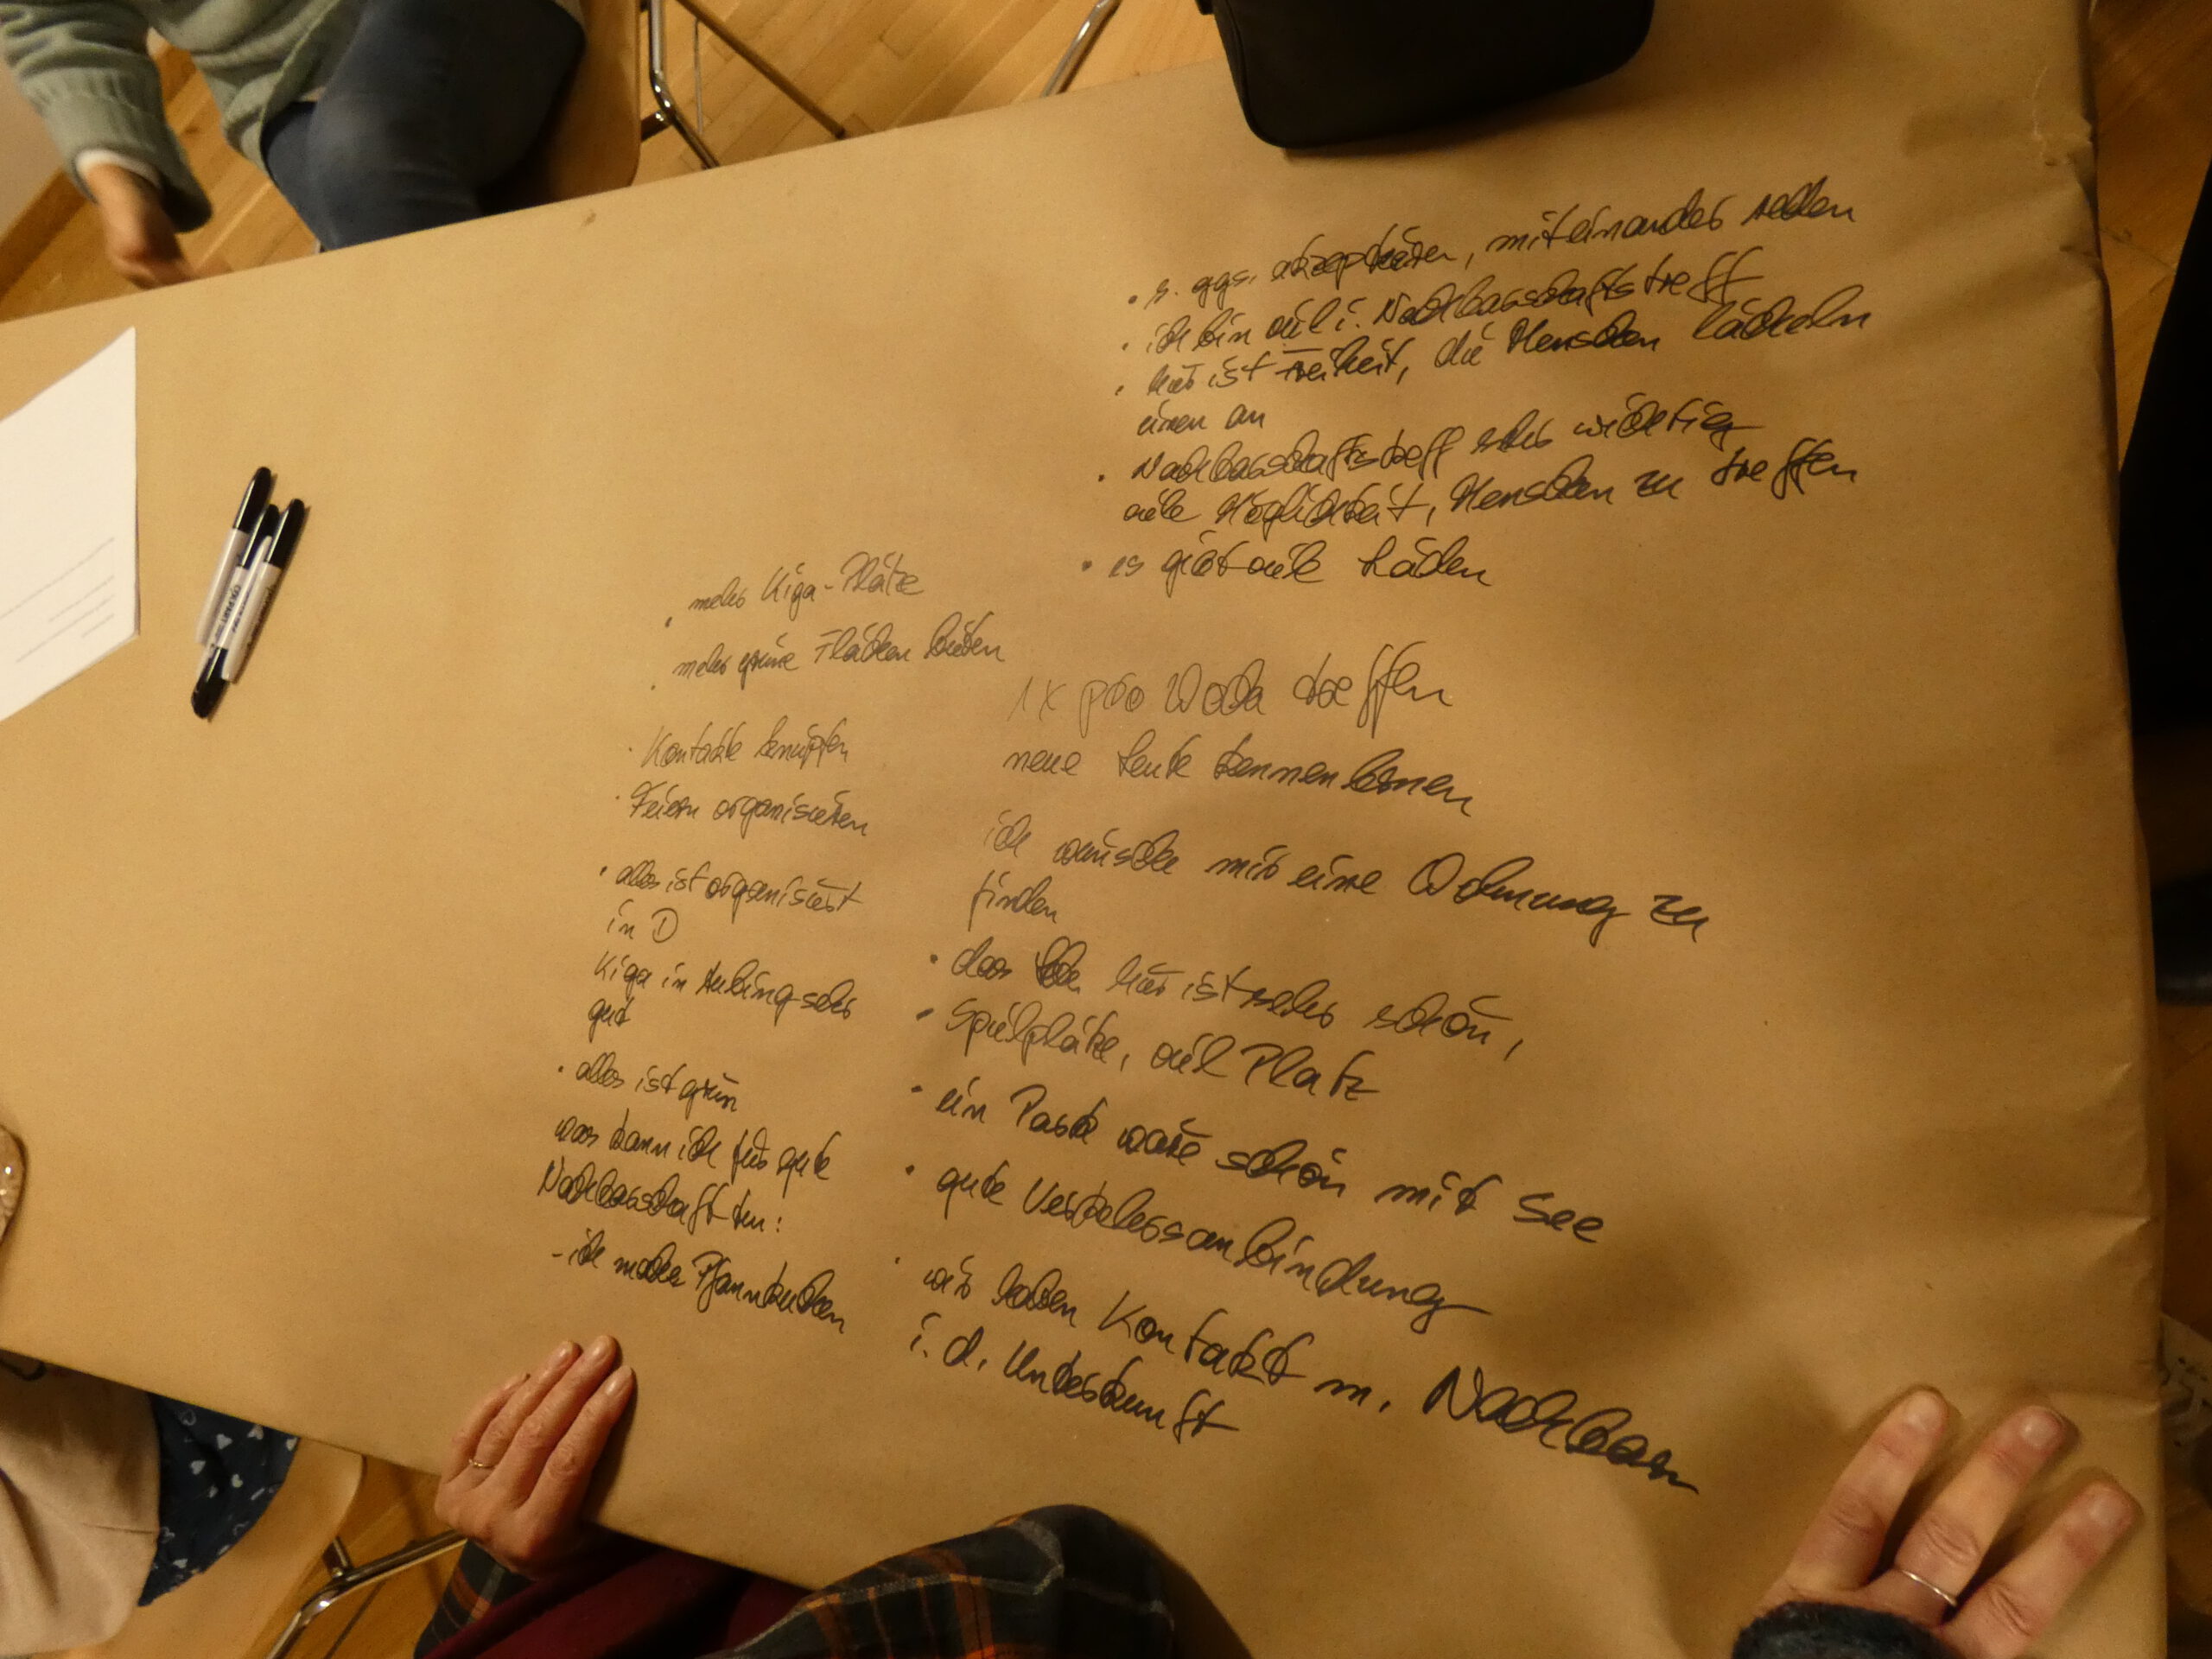 · s. ggs. akzeptieren, miteinander reden
· ich bin viel i. Nachbarschaftstreff
· hier ist Freiheit, die Menschen lächeln
einen an
· Nachbarschaftstreff sehr wichtig
viele Möglichkeit, Menschen zu treffen
· es gibt viele Läden
1x pro Woche treffen
neue Leute kennenlernen
ich wünsche mir eine Wohnung zu
finden
· das hier ist sehr schön,
· Spielplätze, viel Platz
· ein Park wäre schön mit See
· gute Verkehrsanbindung
· wir haben Kontakt m. Nachbarn
i. d. Unterkunft
· mehr Kiga-Plätze
· mehr grüne Flächen bieten
· Kontakte knüpfen
· Feiern organisieren
· alles ist organisiert
in D
Kiga in Aubing sehr
gut
· alles ist grün
was kann ich für gute
Nachbarschaft tun:
- ich mache Pfannkuchen